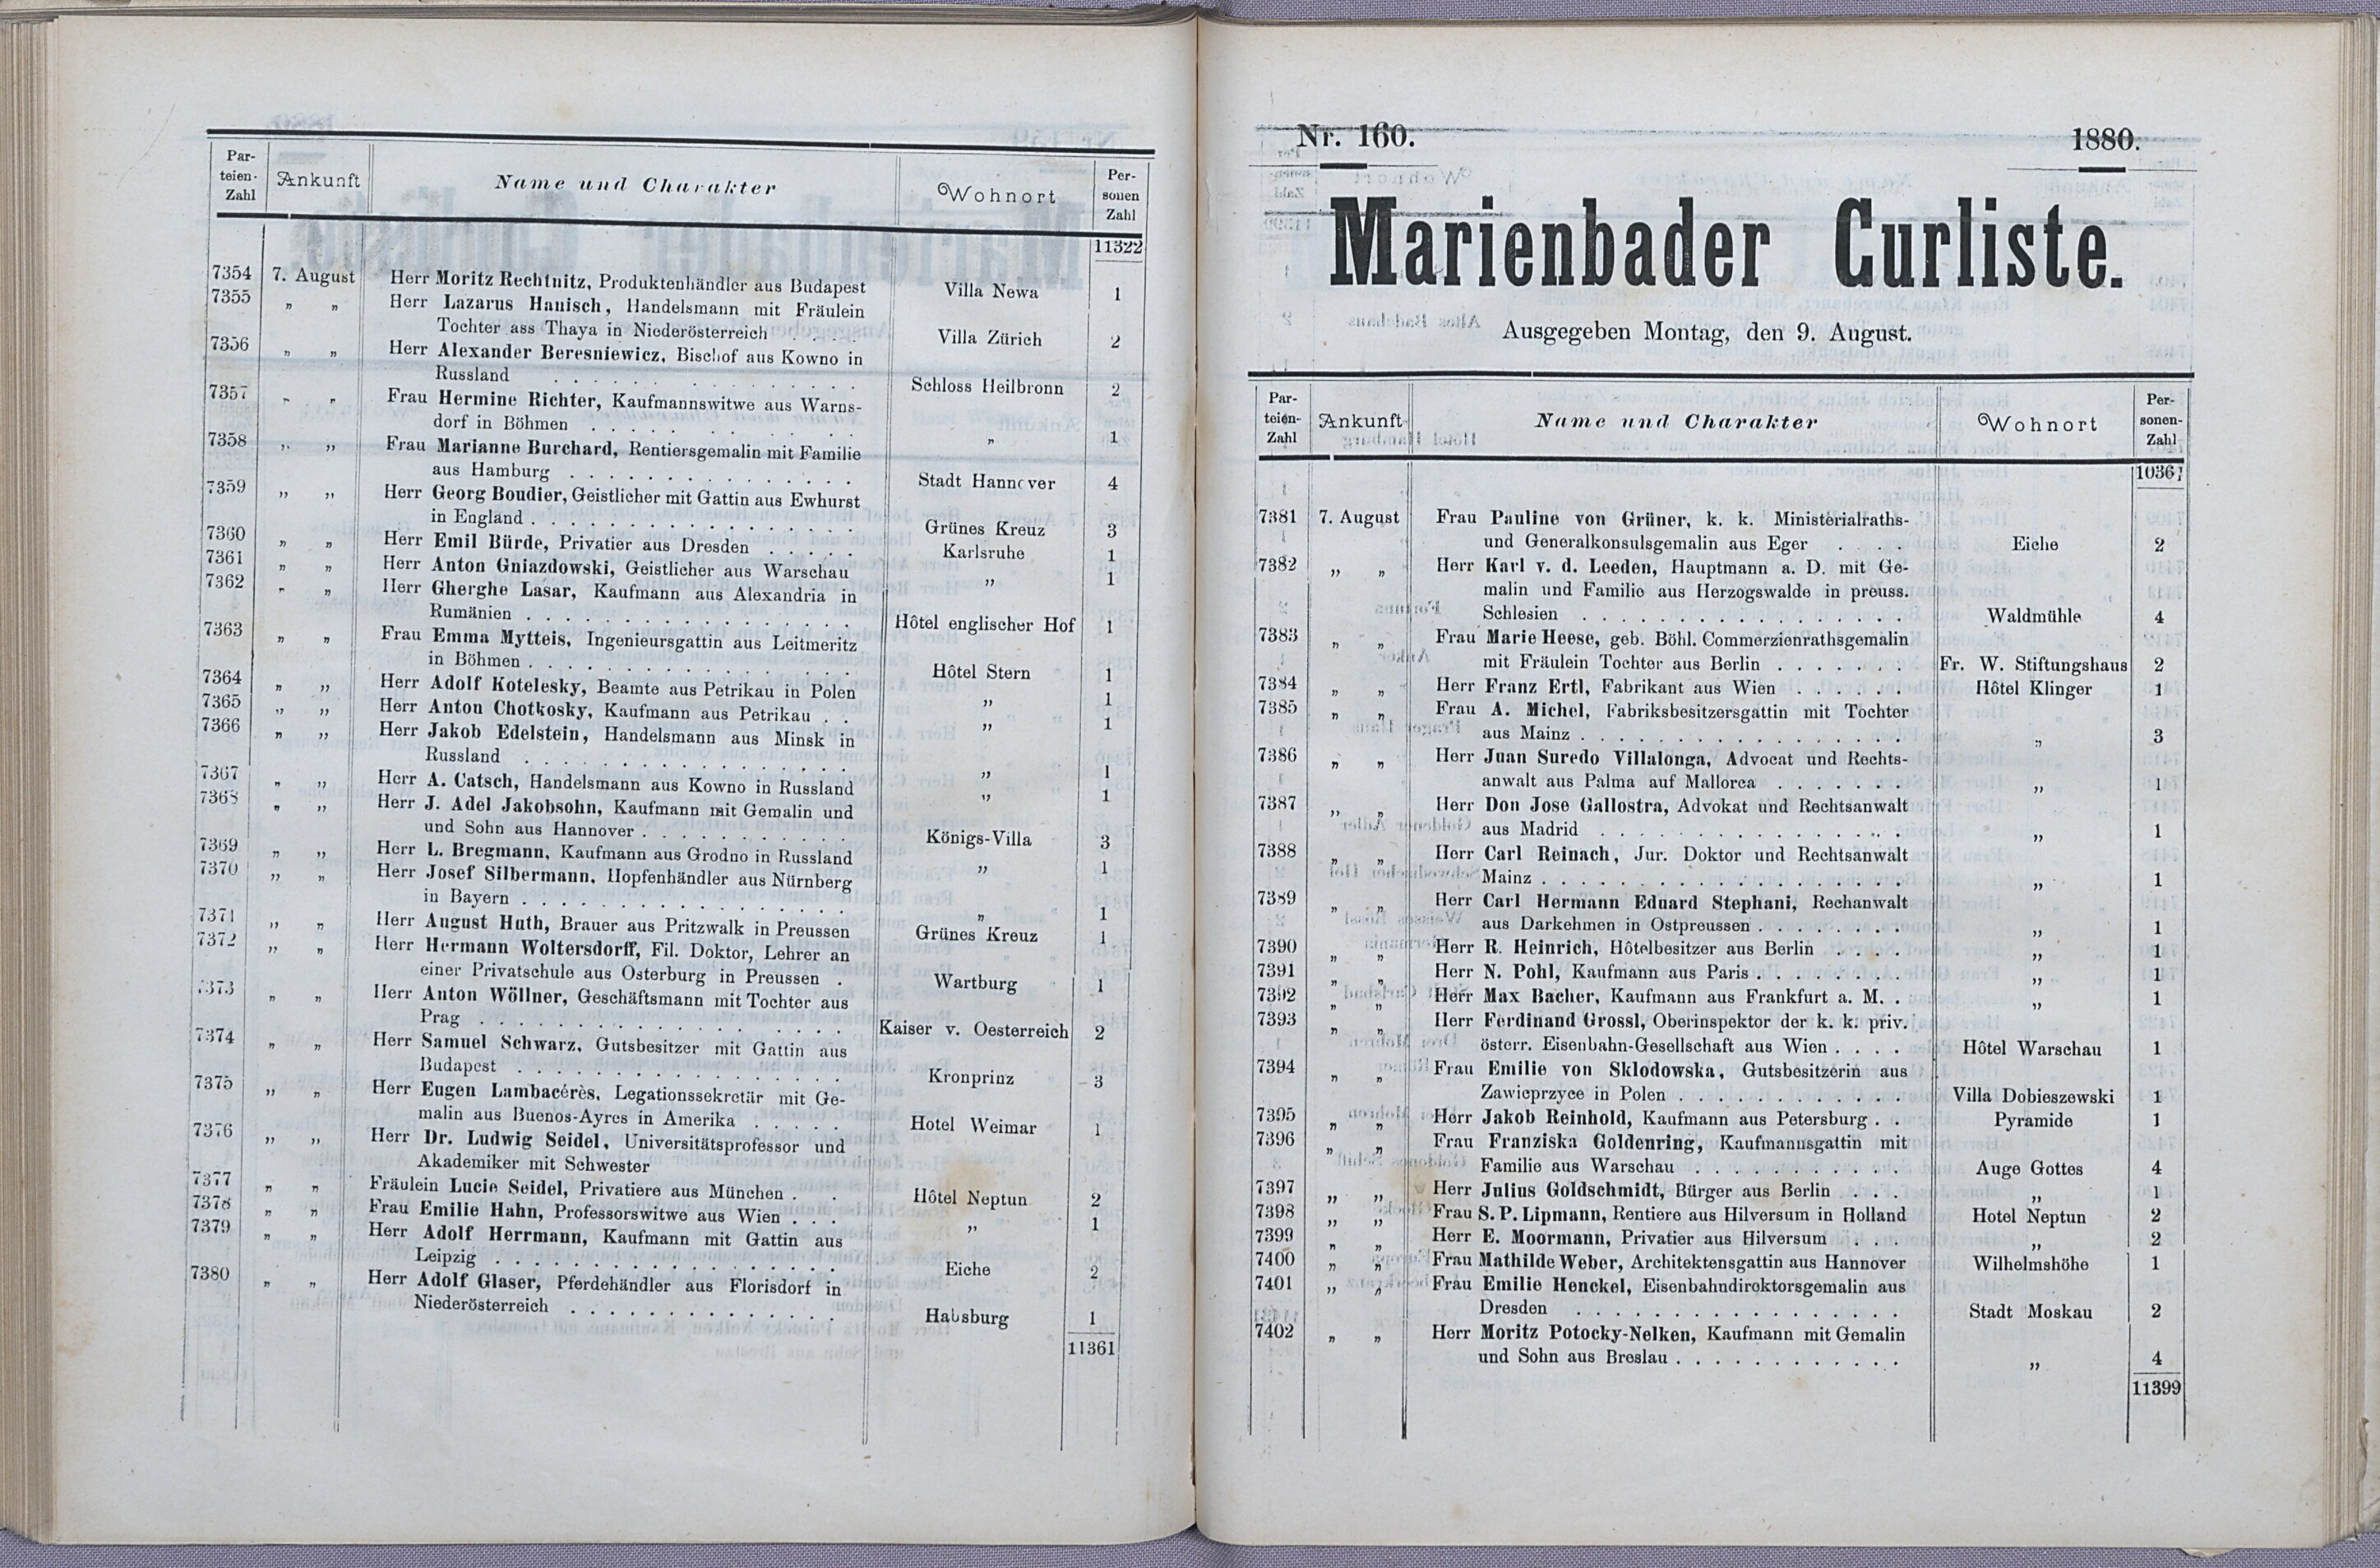 Par-
teien-
Zahl
Ankunft
Name und Charakter
Wohnort
Per-
sonen
Zahl
11322
7354 7. August Herr Moritz Rechtnitz, Produktenhändler aus Budapest Villa Newa 1
7355 „ „ Herr Lazarus Hanisch, Handelsmann mit Fräulein
Tochter ass Thaya in Niederösterreich . . . . Villa Zürich 2
7356 „ „ Herr Alexander Beresniewicz, Bischof aus Kowno in
Russland . . . . . . . . . . . . . . . Schloss Heilbronn 2
7357 „ „ Frau Hermine Richter, Kaufmannswitwe aus Warns-
dorf in Böhmen . . . . . . . . . . . . . „ 1
7358 „ „ Frau Marianne Burchard, Rentiersgemalin mit Familie
aus Hamburg . . . . . . . . . . . . . . . Stadt Hannover 4
7359 „ „ Herr Georg Boudier, Geistlicher mit Gattin aus Ewhurst
in England . . . . . . . . . . . . . . . . Grünes Kreuz 3
7360 „ „ Herr Emil Bürde, Privatier aus Dresden . . . . . Karlsruhe 1
7361 „ „ Herr Anton Gniazdowski, Geistlicher aus Warschau „ 1
7362 „ „ Herr Gherghe Lasar, Kaufmann aus Alexandria in
Rumänien . . . . . . . . . . . . . . . . Hôtel englischer Hof 1
7363 „ „ Frau Emma Mytteis, Ingenieursgattin aus Leitmeritz
in Böhmen . . . . . . . . . . . . . . . . Hôtel Stern 1
7364 „ „ Herr Adolf Kotelesky, Beamte aus Petrikau in Polen „ 1
7365 „ „ Herr Anton Chotkosky, Kaufmann aus Petrikau . . „ 1
7366 „ „ Herr Jakob Edelstein, Handelsmann aus Minsk in
Russland . . . . . . . . . . . . . . . . „ 1
7367 „ „ Herr A. Catsch, Handelsmann aus Kowno in Russland „ 1
7368 „ „ Herr J. Adel Jakobsohn, Kaufmann mit Gemalin und
und Sohn aus Hannover . . . . . . . . . . Königs-Villa 3
7369 „ „ Herr L. Bregmann, Kaufmann aus Grodno in Russland „ 1
7370 „ „ Herr Josef Silbermann, Hopfenhändler aus Nürnberg
in Bayern . . . . . . . . . . . . . . . . „ 1
7371 „ „ Herr August Huth, Brauer aus Pritzwalk in Preussen Grünes Kreuz 1
7372 „ „ Herr Hermann Woltersdorff, Fil. Doktor, Lehrer an
einer Privatschule aus Osterburg in Preussen . Wartburg 1
7373 „ „ Herr Anton Wöllner, Geschäftsmann mit Tochter aus
Prag . . . . . . . . . . . . . . . . . . Kaiser v. Oesterreich 2
7374 „ „ Herr Samuel Schwarz, Gutsbesitzer mit Gattin aus
Budapest . . . . . . . . . . . . . . . . Kronprinz 3
7375 „ „ Herr Eugen Lambacérès, Legationssekretär mit Ge-
malin aus Buenos-Ayres in Amerika . . . . . Hotel Weimar 1
7376 „ „ Herr Dr. Ludwig Seidel, Universitätsprofessor und
Akademiker mit Schwester
7377 „ „ Fräulein Lucie Seidel, Privatiere aus München . . Hôtel Neptun 2
7378 „ „ Frau Emilie Hahn, Professorswitwe aus Wien . . . „ 1
7379 „ „ Herr Adolf Herrmann, Kaufmann mit Gattin aus
Leipzig . . . . . . . . . . . . . . . . . Eiche 2
7380 „ „ Herr Adolf Glaser, Pferdehändler aus Florisdorf in
Niederösterreich . . . . . . . . . . . . . Habsburg 1
11361
Nr. 160. 1880.
Marienbader Curliste.
Ausgegeben Montag, den 9. August.
Par-
teien-
Zahl
Ankunft
Name und Charakter
Wohnort
Per-
sonen-
Zahl
10361
7381 7. August Frau Pauline von Grüner, k. k. Ministerialraths-
und Generalkonsulsgemalin aus Eger . . . . Eiche 2
7382 „ „ Herr Karl v. d. Leeden, Hauptmann a. D. mit Ge-
malin und Familie aus Herzogswalde in preuss.
Schlesien . . . . . . . . . . . . . . . . Waldmühle 4
7383 „ „ Frau Marie Heese, geb. Böhl. Commerzienrathsgemalin
mit Fräulein Tochter aus Berlin . . . . . . . Fr. W. Stiftungshaus 2
7384 „ „ Herr Franz Ertl, Fabrikant aus Wien . . . . . . Hôtel Klinger 1
7385 „ „ Frau A. Michel, Fabriksbesitzersgattin mit Tochter
aus Mainz . . . . . . . . . . . . . . . . „ 3
7386 „ „ Herr Juan Suredo Villalonga, Advocat und Rechts-
anwalt aus Palma auf Mallorca . . . . . . . „ 1
7387 „ „ Herr Don Jose Gallostra, Advokat und Rechtsanwalt
aus Madrid . . . . . . . . . . . . . . . „ 1
7388 „ „ Herr Carl Reinach, Jur. Doktor und Rechtsanwalt
Mainz . . . . . . . . . . . . . . . . . . „ 1
7389 „ „ Herr Carl Hermann Eduard Stephani, Rechanwalt
aus Darkehmen in Ostpreussen . . . . . . . . „ 1
7390 „ „ Herr R. Heinrich, Hôtelbesitzer aus Berlin . . . . „ 1
7391 „ „ Herr N. Pohl, Kaufmann aus Paris . . . . . . . . „ 1
7392 „ „ Herr Max Bacher, Kaufmann aus Frankfurt a. M. . „ 1
7393 „ „ Herr Ferdinand Grossl, Oberinspektor der k. k. priv.
österr. Eisenbahn-Gesellschaft aus Wien . . . . Hôtel Warschau 1
7394 „ „ Frau Emilie von Sklodowska, Gutsbesitzerin aus
Zawieprzyce in Polen . . . . . . . . . . . . Villa Dobieszewski 1
7395 „ „ Herr Jakob Reinhold, Kaufmann aus Petersburg . . Pyramide 1
7396 „ „ Frau Franziska Goldenring, Kaufmannsgattin mit
Familie aus Warschau . . . . . . . . . . . Auge Gottes 4
7397 „ „ Herr Julius Goldschmidt, Bürger aus Berlin . . . „ 1
7398 „ „ Frau S. P. Lipmann, Rentiere aus Hilversum in Holland Hotel Neptun 2
7399 „ „ Herr E. Moormann, Privatier aus Hilversum . . . „ 2
7400 „ „ Frau Mathilde Weber, Architektensgattin aus Hannover Wilhelmshöhe 1
7401 „ „ Frau Emilie Henckel, Eisenbahndirektorsgemalin aus
Dresden . . . . . . . . . . . . . . . . . Stadt Moskau 2
7402 „ „ Herr Moritz Potocky-Nelken, Kaufmann mit Gemalin
und Sohn aus Breslau . . . . . . . . . . . . „ 4
11399